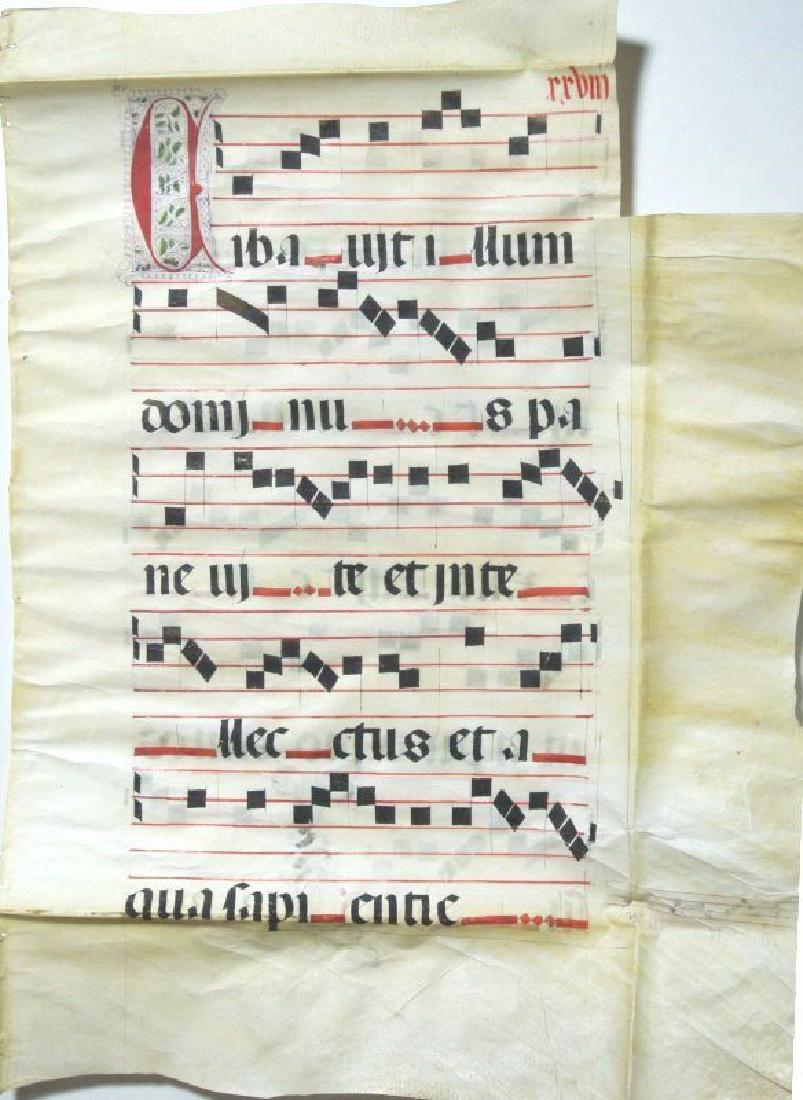 xxviii
Ciba uit i llum
domi nu s pa
ne vi te et inte
llec ctus et a
qua sapi entie